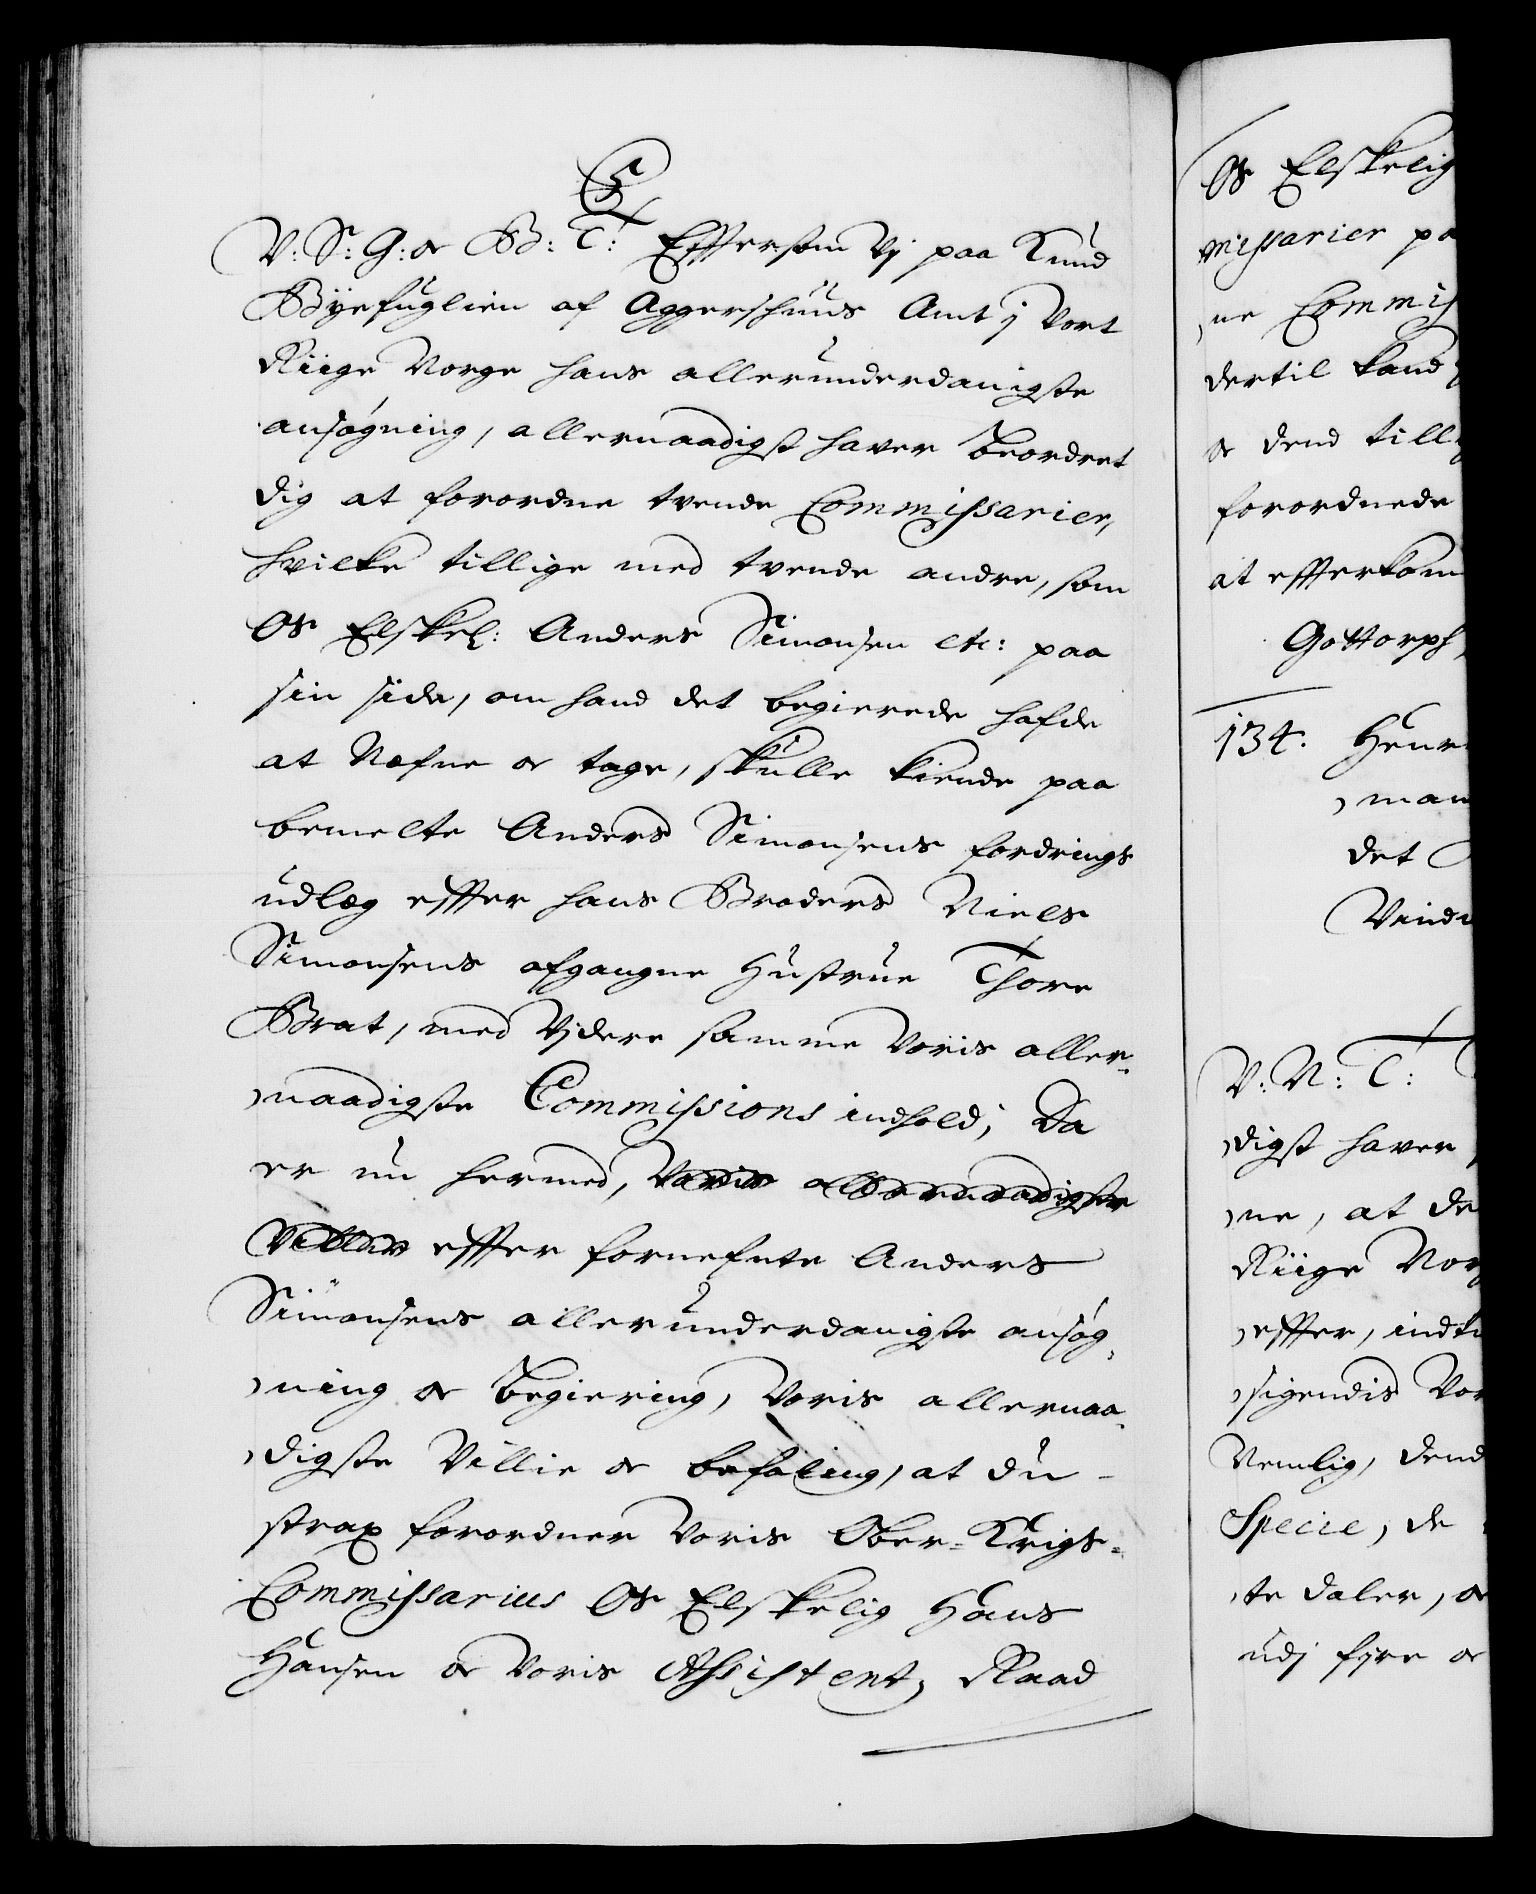 C5
V: S: G: oc B: T: Effterssom Vj paa Knud
Byefuglien af Aggershuus Amt j Vort
Riige Norge hans allerunderdanigste
ansøgning, allernaadigst haver beordret
dig at forordne tvende Commissarier,
hvilke tillige med tvende andre, som
Os Elskel: Anders Simonsen etc: paa
sin side, om hand det begierede hafde
at Nefne oc tage, skulle kiende paa
bemelte Anders Simonsens fordrings
udlæg effter hans Broders Niels
Simonsens afgangne Hustrue Thore
Brat, med Vjdere samme Voris aller-
naadigste Commissions indhold; Da
er nu hermed, Voris allernaadigste
Villie effter fornefnte Anders
Simonsens allerunderdanigste ansøg-
ning oc begiering, Voris allernaa-
digste Villie oc befaling, at du
strax forordner Voris Ober-Krigs-
Commissarius Os Elskelig Hans
Hansen oc Voris Assistent, Raad
Os Elskelig
missarier pa
ne Commis
dertil kand
oc dend till
forordnede
at effterkom
Gottorph,
134. Henr
man
det
Vind
V: N: T:
digst haver
ne, at de
Riige Nor
effter, ind
sigendis Vor
Nemlig, dend
Specie, de
te daler, oc
udj fire oc